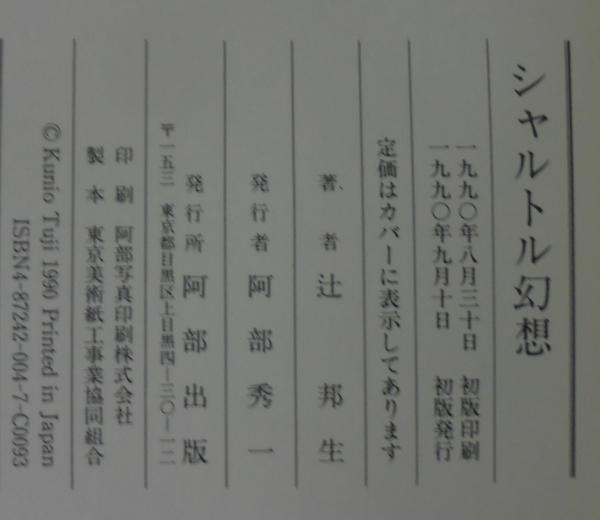 シャルトル幻想
一九九〇年八月三十日 初版印刷
一九九〇年九月十日 初版発行
定価はカバーに表示してあります
著者 辻邦生
発行者 阿部秀一
発行所 阿部出版
〒一五三 東京都目黒区上目黒四—三〇—一二
印刷 阿部写真印刷株式会社
製本 東京美術紙工事業協同組合
© Kunio Tuji 1990 Printed in Japan
ISBN4-87242-004-7-C0093